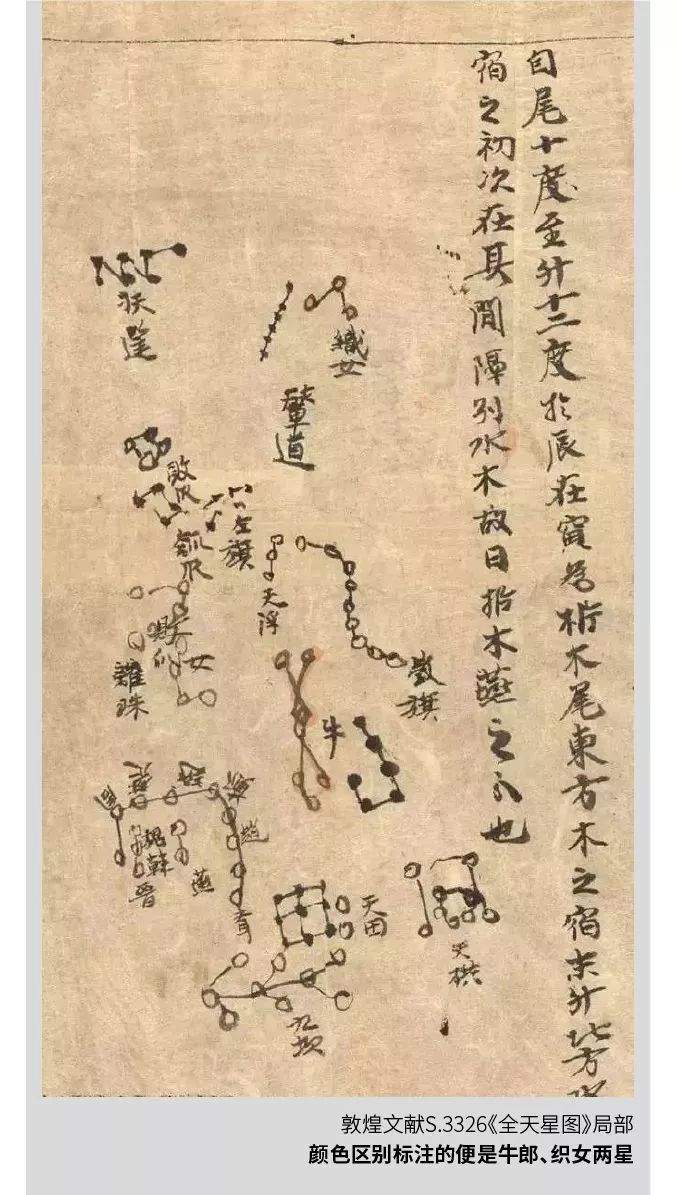 自尾十度至斗十二度於辰在寅為析木尾東方木之宿末斗北方水
宿之初次在其間隔別水木故曰析木燕之分也
織女
輦道
扶筐
敗瓜
瓠瓜
左旗
天浮
旗
女
離珠
牛
趙
魏
韓
晉
燕
天田
九坎
敦煌文献S.3326《全天星图》局部
颜色区别标注的便是牛郎、织女两星